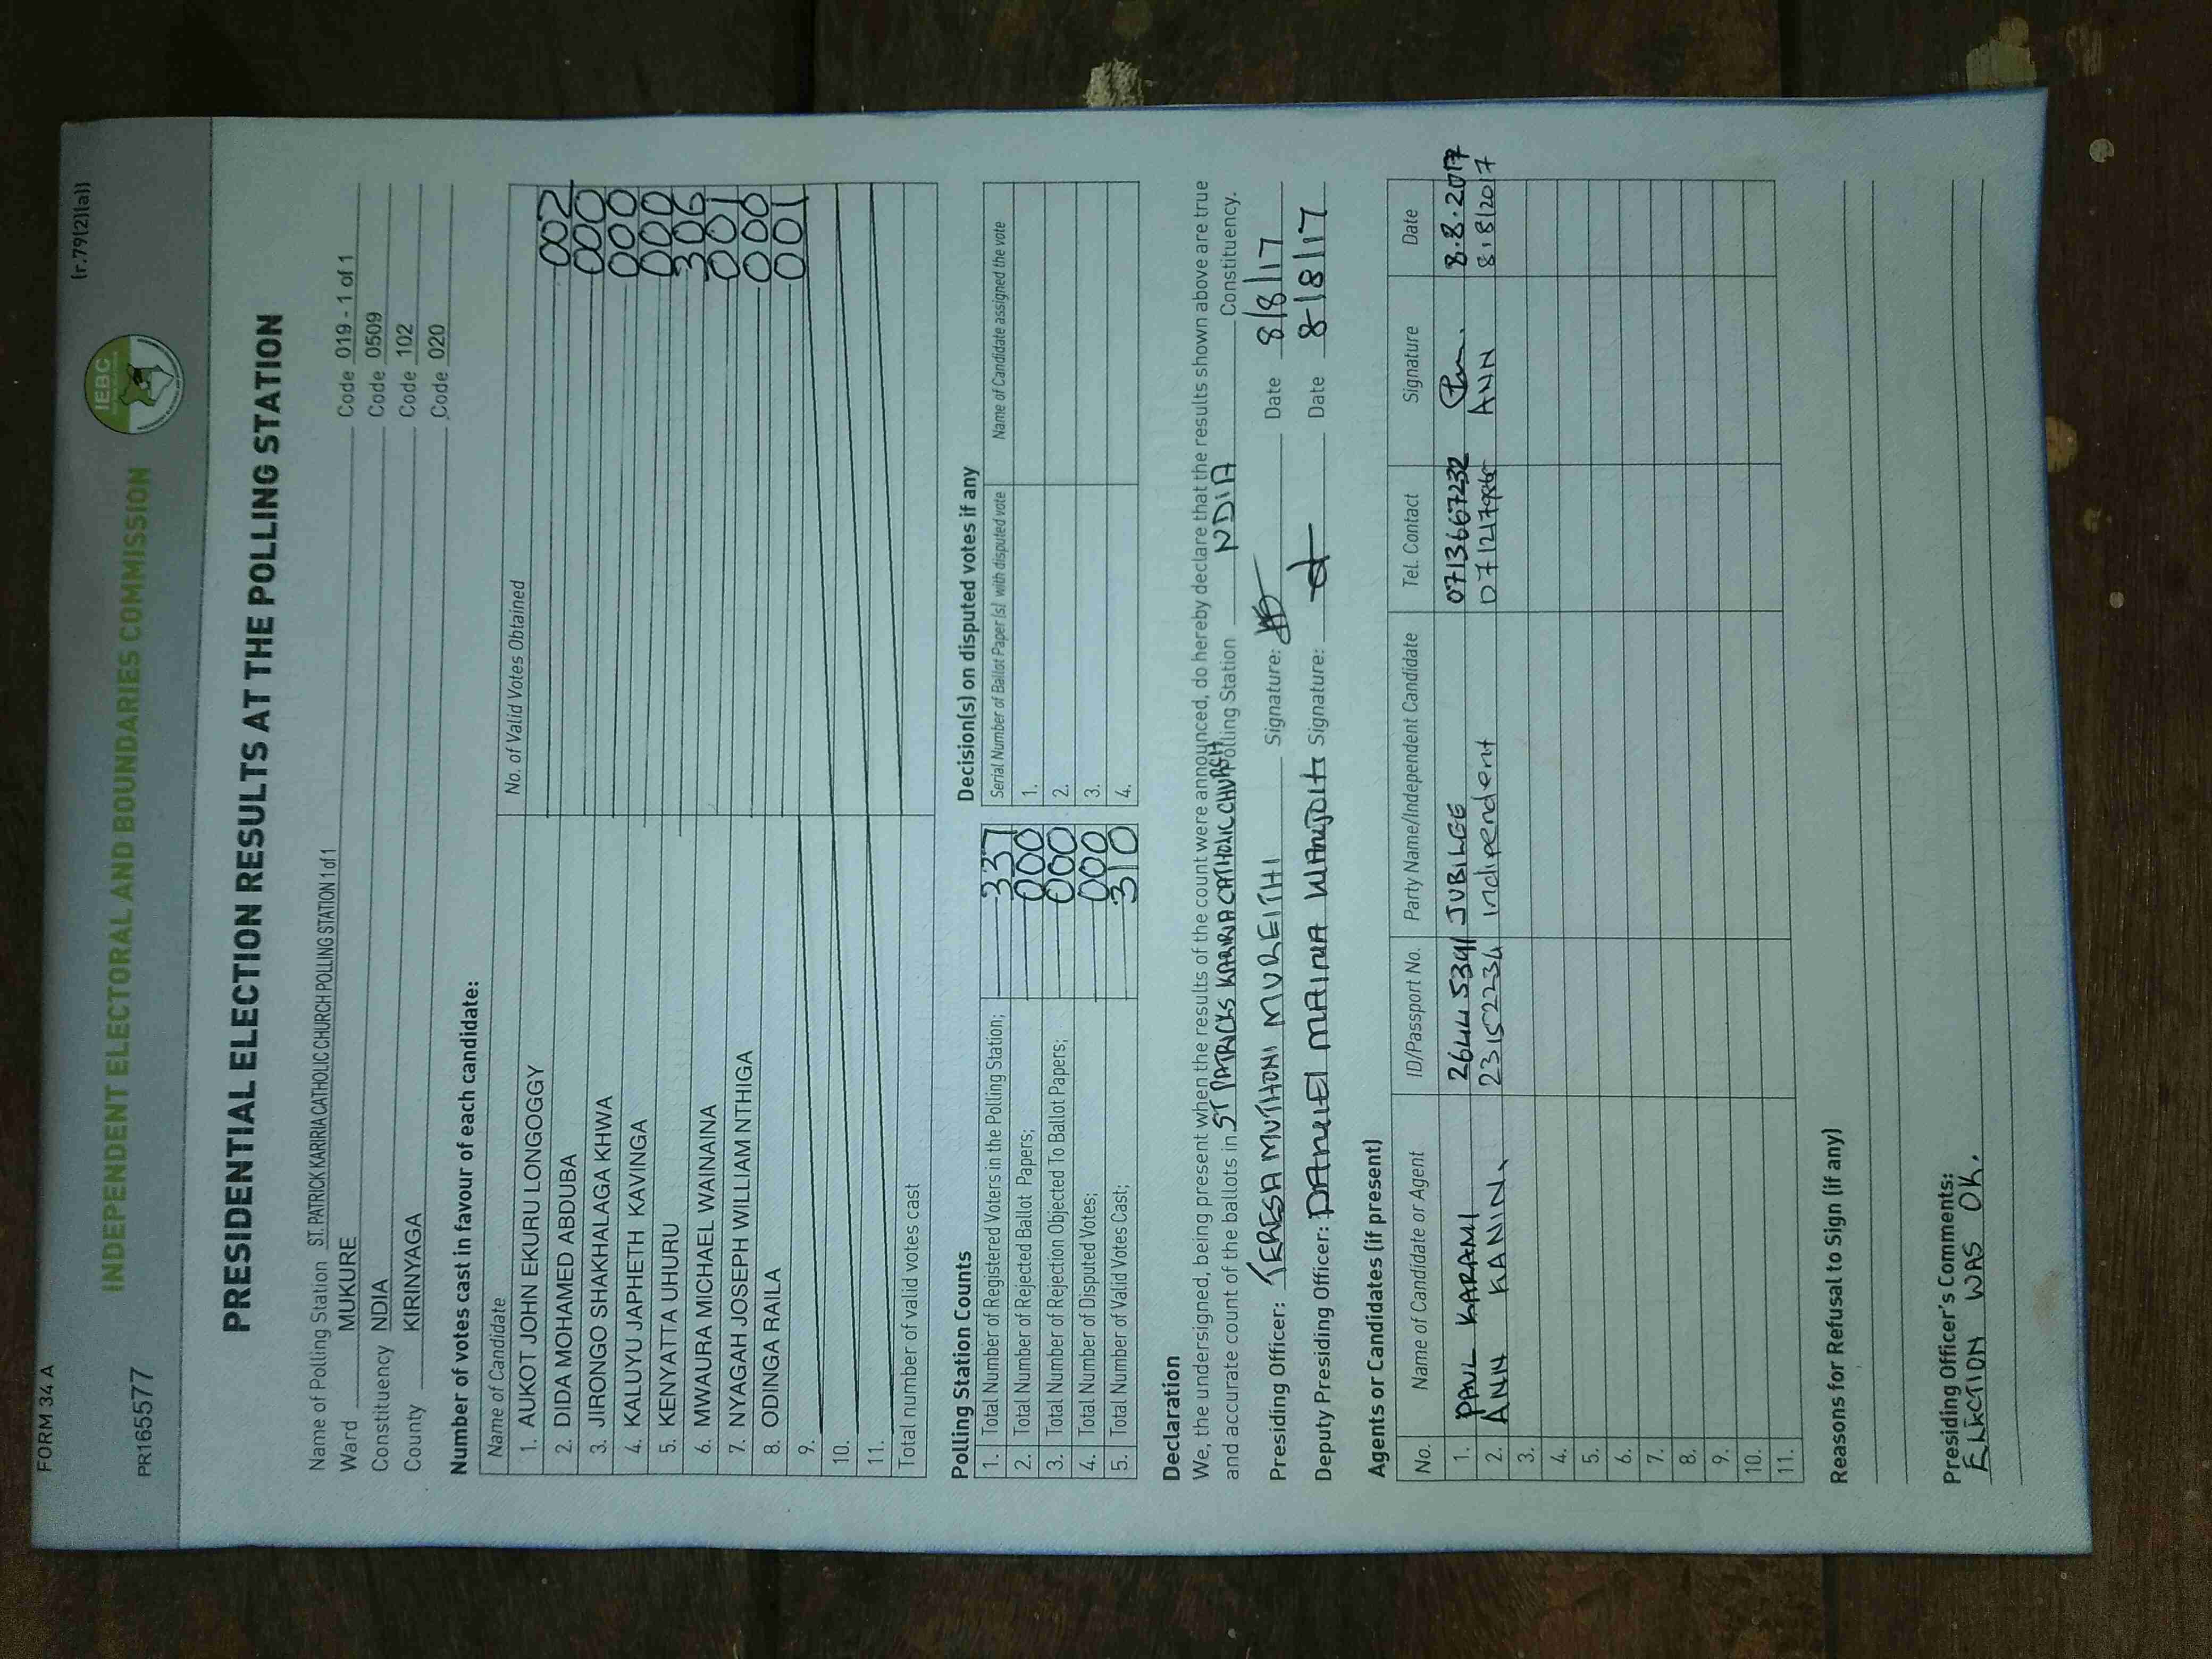 FORM 34 A
(r.79(2)(a))
IEBC
INDEPENDENT ELECTORAL AND BOUNDARIES COMMISSION
PR165577
PRESIDENTIAL ELECTION RESULTS AT THE POLLING STATION
Name of Polling Station ST. PATRICK KARIRIA CATHOLIC CHURCH POLLING STATION 1 of 1 Code 019 - 1 of 1
Ward MUKURE Code 0509
Constituency NDIA Code 102
County KIRINYAGA Code 020
Number of votes cast in favour of each candidate:
Name of Candidate No. of Valid Votes Obtained
1. AUKOT JOHN EKURU LONGOGGY 002
2. DIDA MOHAMED ABDUBA 000
3. JIRONGO SHAKHALAGA KHWA 000
4. KALUYU JAPHETH KAVINGA 000
5. KENYATTA UHURU 306
6. MWAURA MICHAEL WAINAINA 001
7. NYAGAH JOSEPH WILLIAM NTHIGA 000
8. ODINGA RAILA 001
9.
10.
11.
Total number of valid votes cast
Polling Station Counts
1. Total Number of Registered Voters in the Polling Station; 337
2. Total Number of Rejected Ballot Papers; 000
3. Total Number of Rejection Objected To Ballot Papers; 000
4. Total Number of Disputed Votes; 000
5. Total Number of Valid Votes Cast; 310
Decision(s) on disputed votes if any
Serial Number of Ballot Paper (s) with disputed vote Name of Candidate assigned the vote
1.
2.
3.
4.
Declaration
We, the undersigned, being present when the results of the count were announced, do hereby declare that the results shown above are true
and accurate count of the ballots in ST PATRICKS KARIRIA CATHOLIC CHURCH Polling Station NDIA Constituency.
Presiding Officer: TERESA MUTHONI MUREITHI Signature: Date 8/8/17
Deputy Presiding Officer: DANIEL MAINA Signature: Date 8/8/17
Agents or Candidates (if present)
No. Name of Candidate or Agent ID/Passport No. Party Name/Independent Candidate Tel. Contact Signature Date
1. PAUL KARAMI 26445341 JUBILEE 0713667232 8.8.2017
2. ANN KANINI 23152234 indipendent ANN 8.8.2017
3.
4.
5.
6.
7.
8.
9.
10.
11.
Reasons for Refusal to Sign (if any)
Presiding Officer's Comments:
ELECTION WAS OK.